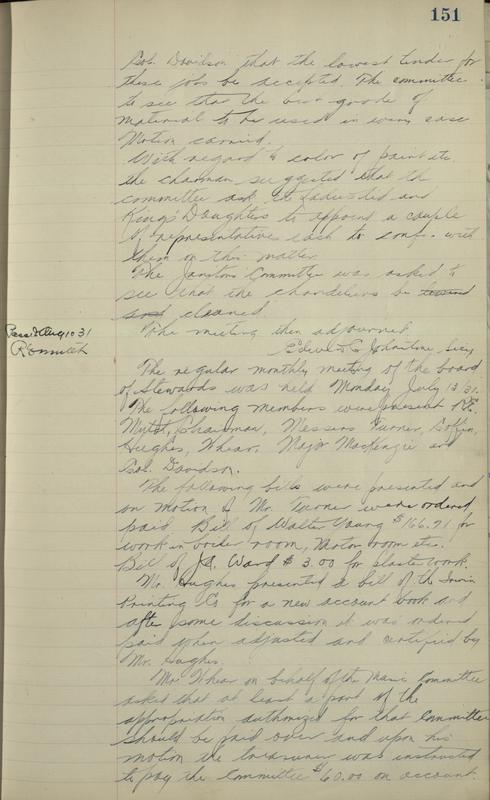 151
Col. Davidson that the lowest tender for
these jobs be accepted. The committee
to see that the best grade of
material to be used in every case
Motion carried.
With regard to color of paint etc.
the chairman suggested that the
committee ask the Ladies Aid and
King's Daughters to appoint a couple
of representatives each to confer with
them on this matter.
The Janitors Committee was asked to
see that the chandeliers be
cleaned
The meeting then adjourned.
Pass'd Aug 10 31
Johnstone Secy
The regular monthly meeting of the board
of Stewards was held Monday July 13 31.
The following members were present R.E.
Chairman, Messers Turner, Coffin,
Hughes, Whear, Major MacKenzie and
Col. Davidson.
The following bills were presented and
on motion of Mr. Turner were ordered
paid Bill of Walter Young $166.71 for
work in boiler room, Motor room etc.
Bill of J.A. Ward $3.00 for plaster work.
Mr. Hughes presented a bill of the Irwin
Printing Co for a new account book and
after some discussion it was ordered
paid when adjusted and certified by
Mr. Hughes.
Mr. Whear on behalf of the Music Committee
asked that at least a part of the
appropriation authorized for that Committee
should be paid over and upon his
motion the treasurer was instructed
to pay the Committee $60.00 on account.